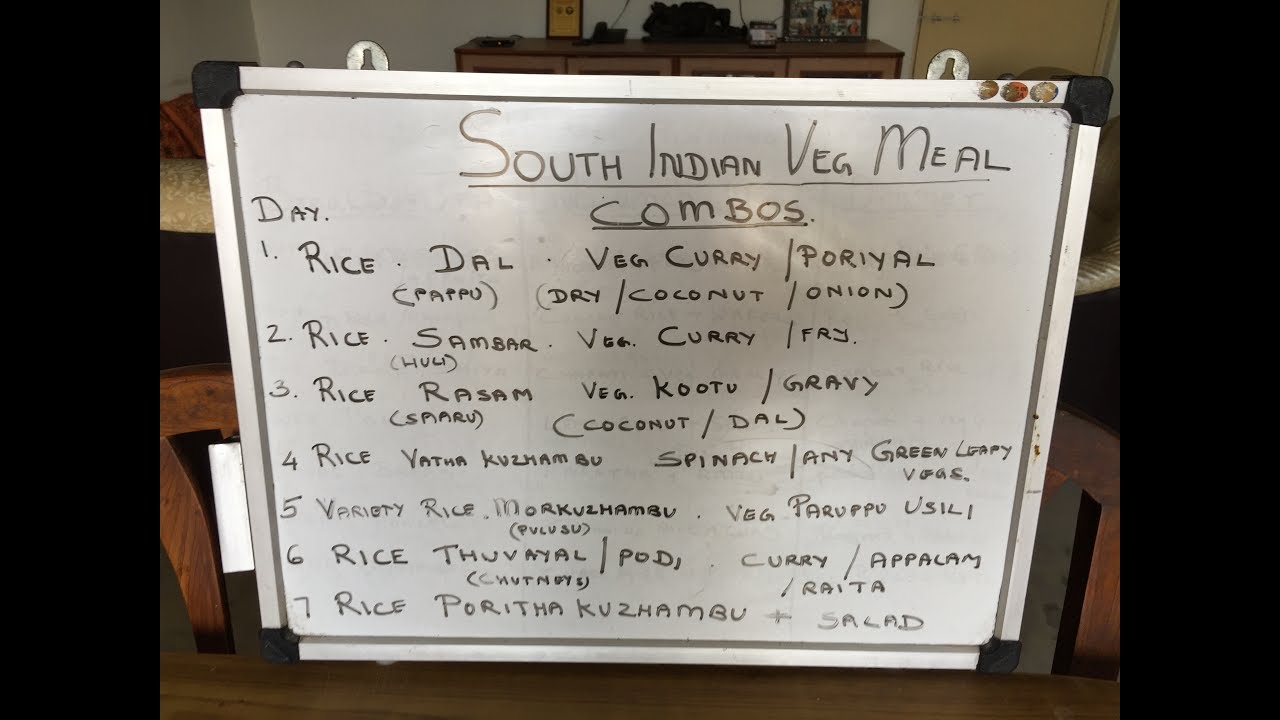 SOUTH INDIAN VEG MEAL
DAY. COMBOS.
1. RICE . DAL . VEG CURRY / PORIYAL
(PAPPU) (DRY / COCONUT / ONION)
2. RICE . SAMBAR . VEG. CURRY / FRY.
(HULI)
3. RICE RASAM VEG. KOOTU / GRAVY
(SAARU) (COCONUT / DAL)
4 RICE VATHA KUZHAMBU SPINACH / ANY GREEN LEAFY
VEGS.
5 VARIETY RICE . MORKUZHAMBU . VEG PARUPPU USILI
(PULUSU)
6 RICE THUVAYAL / PODI . CURRY / APPALAM
(CHUTNEYS) / RAITA
7 RICE PORITHA KUZHAMBU + SALAD